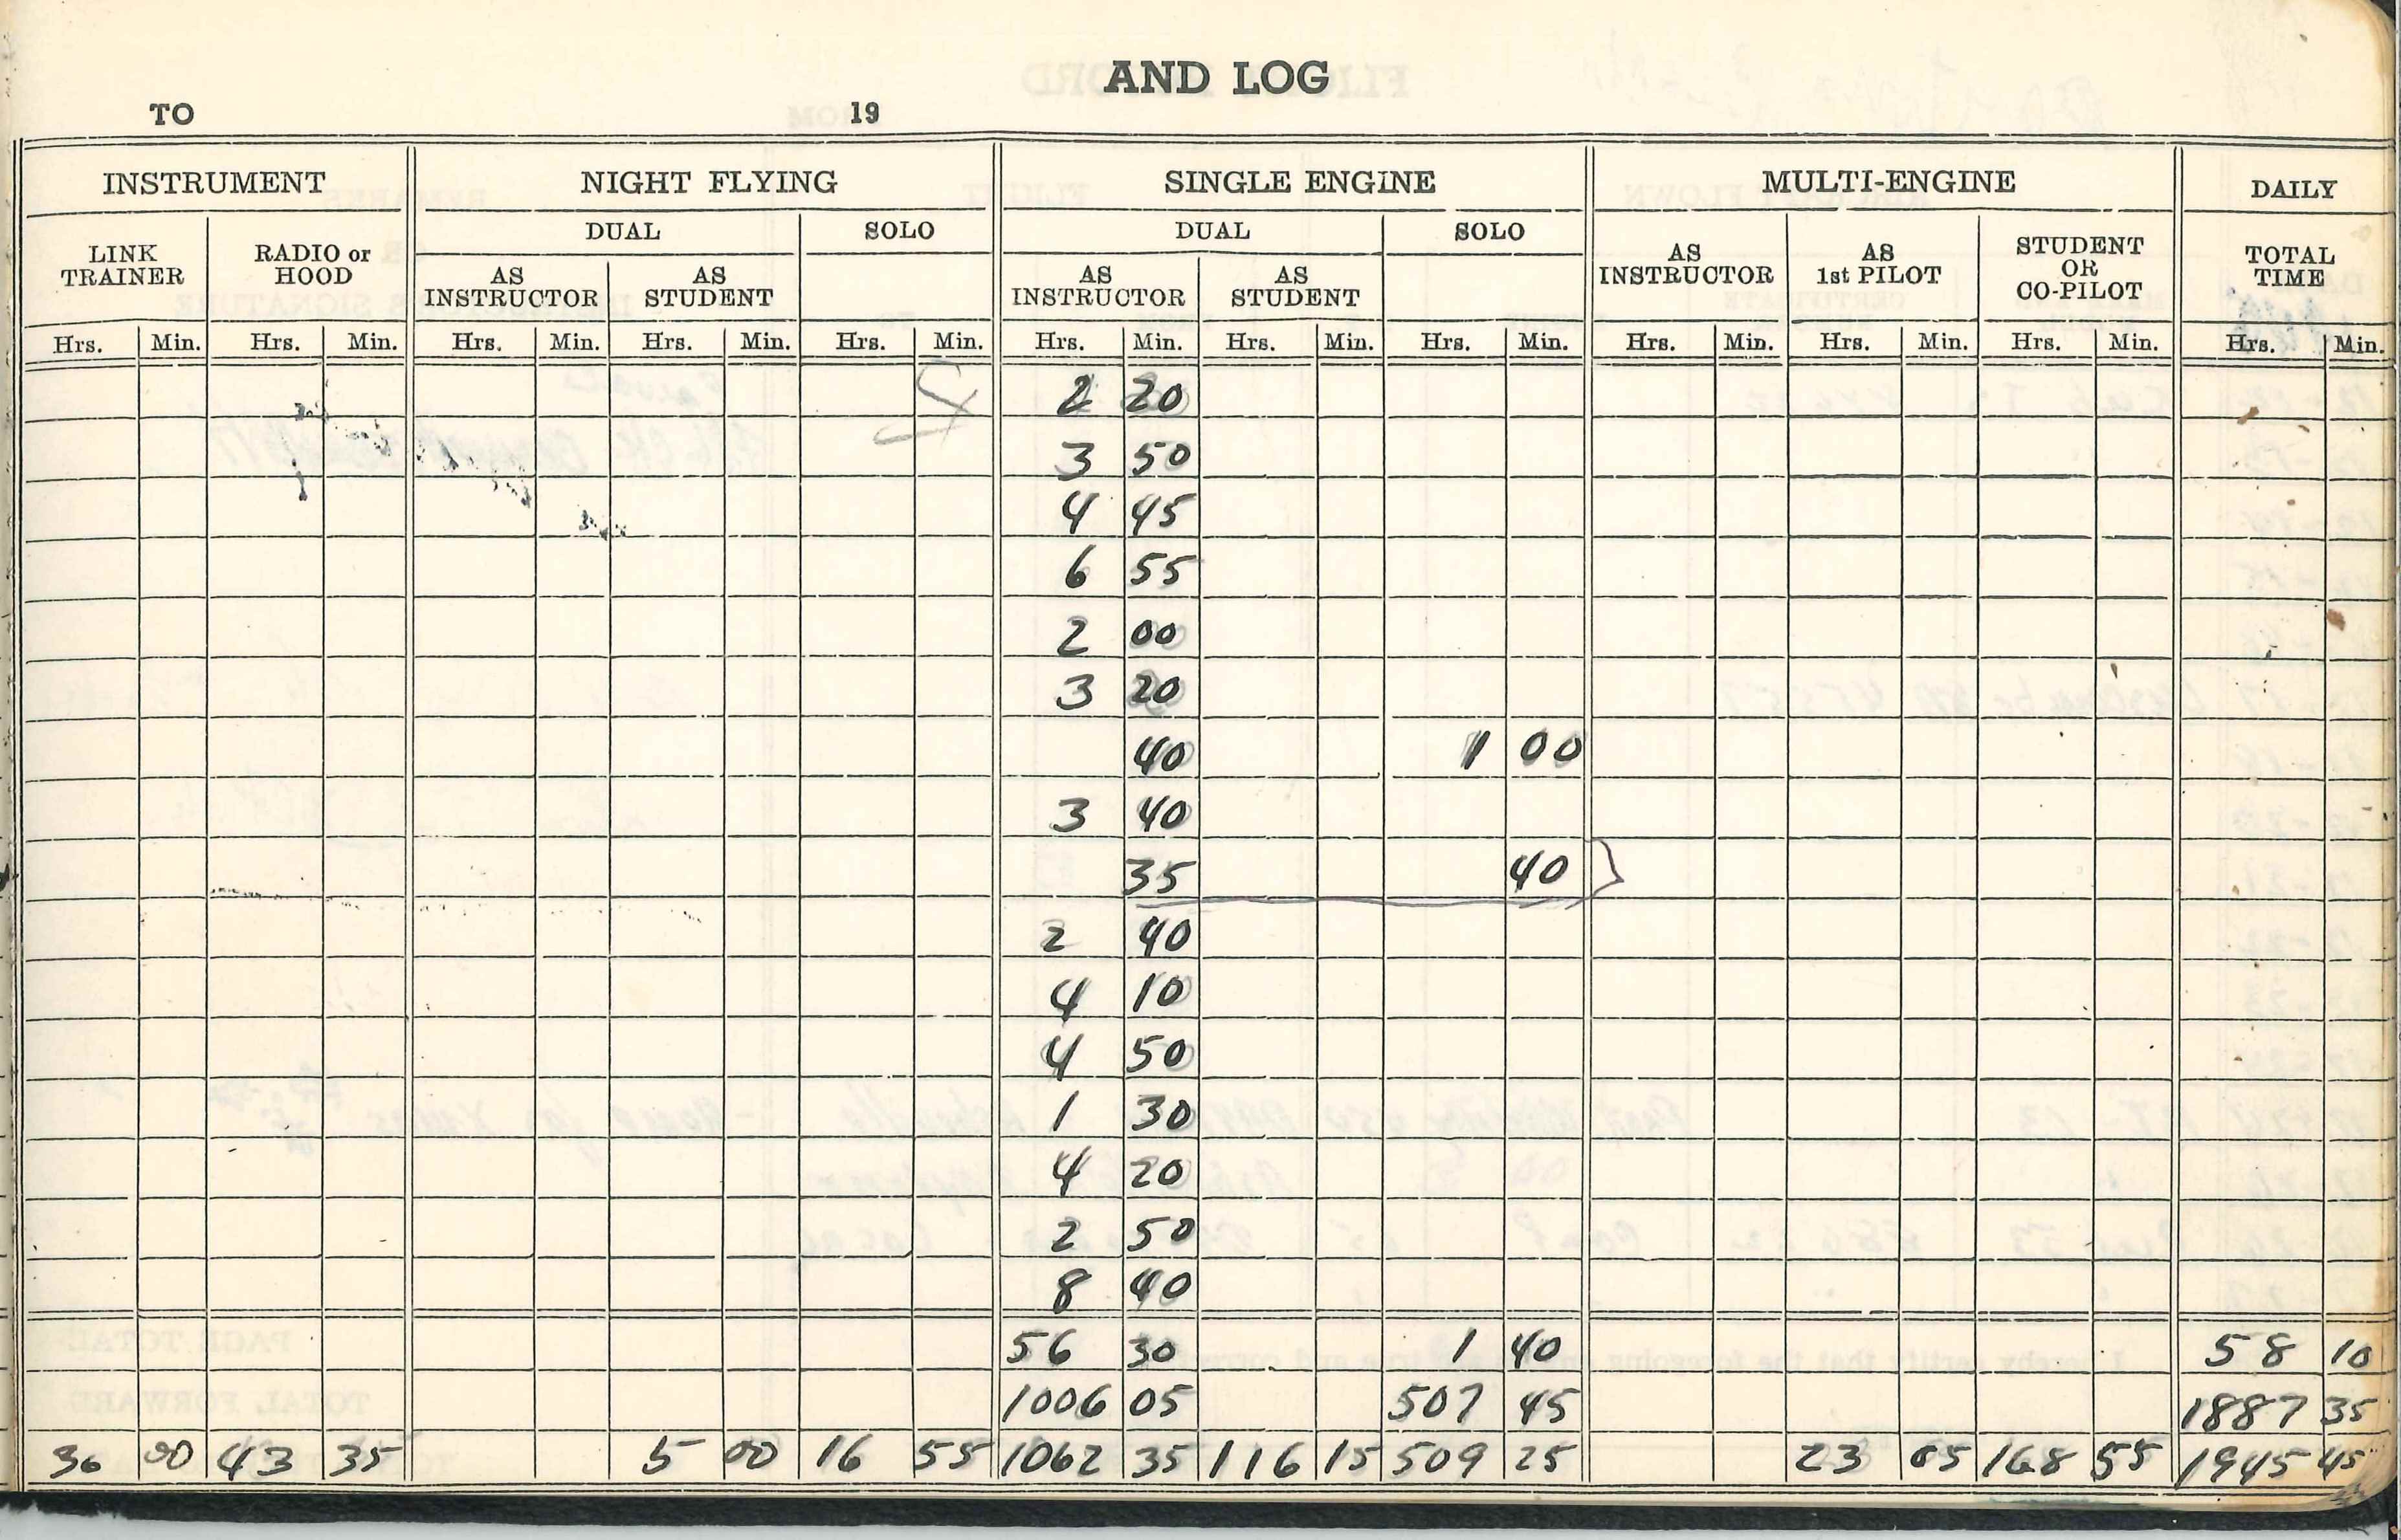 AND LOG
TO 19
INSTRUMENT NIGHT FLYING SINGLE ENGINE MULTI-ENGINE DAILY
DUAL SOLO DUAL SOLO
LINK TRAINER RADIO or HOOD AS INSTRUCTOR AS STUDENT AS INSTRUCTOR AS STUDENT AS INSTRUCTOR AS 1st PILOT STUDENT OR CO-PILOT TOTAL TIME
Hrs. Min. Hrs. Min. Hrs. Min. Hrs. Min. Hrs. Min. Hrs. Min. Hrs. Min. Hrs. Min. Hrs. Min. Hrs. Min. Hrs. Min. Hrs. Min.
2 20
3 50
4 45
6 55
2 00
3 20
40 1 00
3 40
35 40
2 40
4 10
4 50
1 30
4 20
2 50
8 40
56 30 1 40 58 10
1006 05 507 45 1887 35
36 00 43 35 5 00 16 55 1062 35 116 15 509 25 23 05 168 55 1945 45